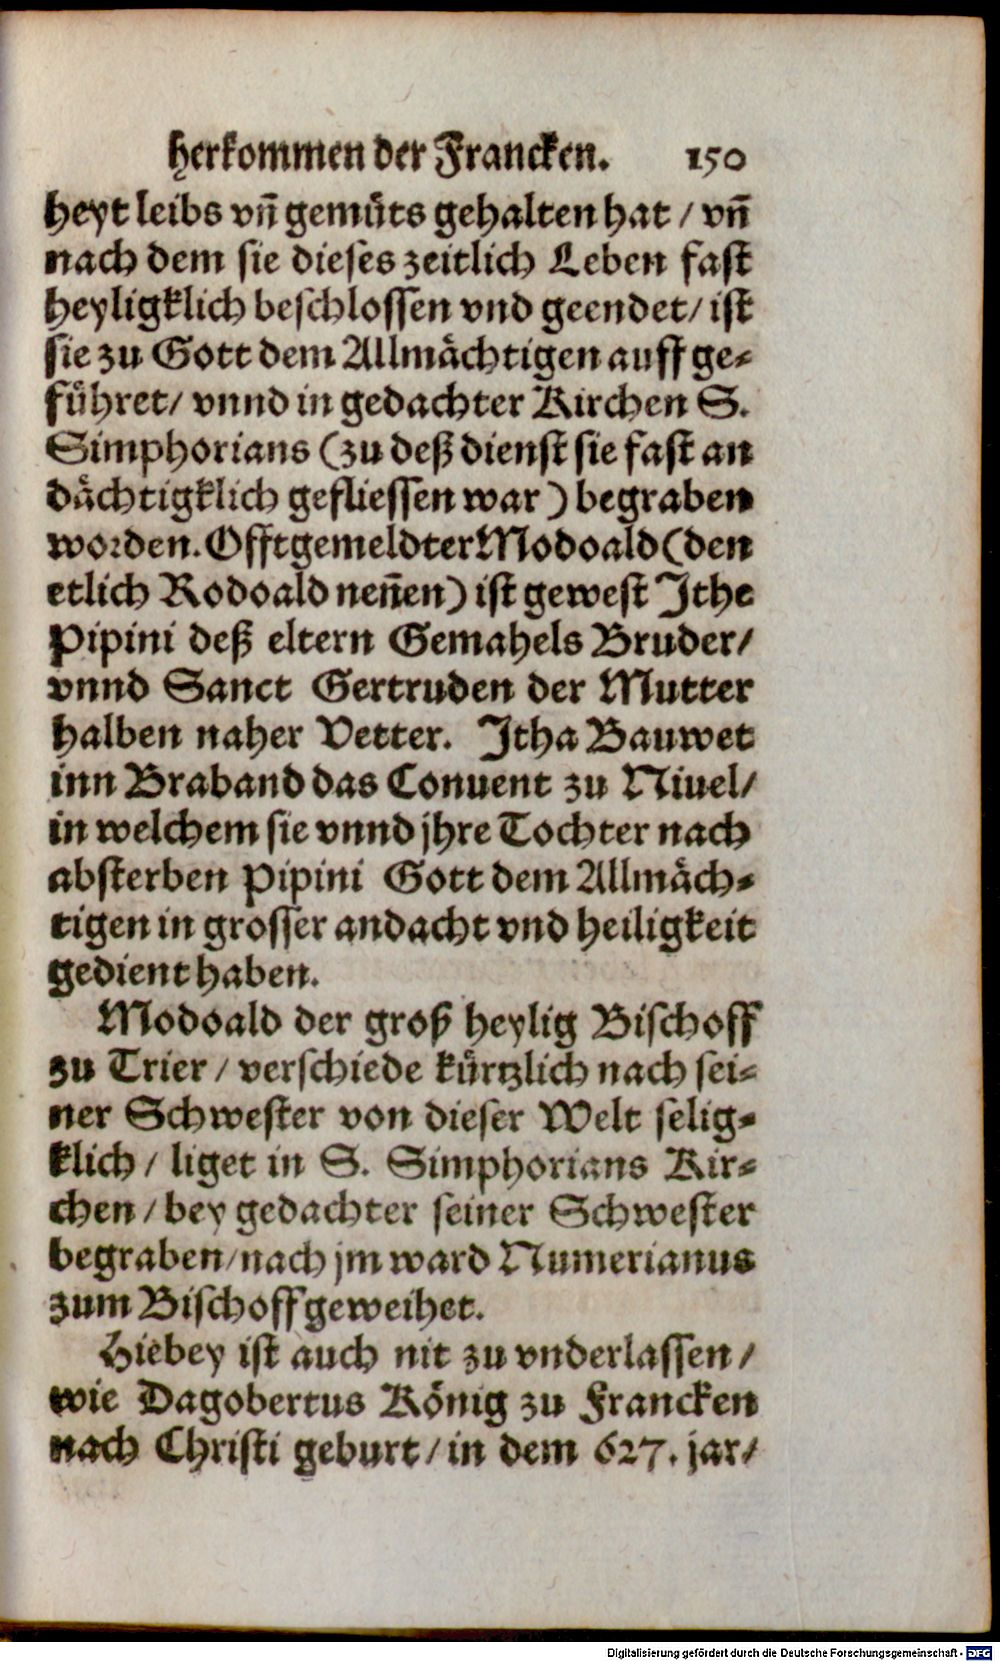 herkommen der Francken. 150
heyt leibs vn̄ gemüts gehalten hat / vn̄
nach dem sie dieses zeitlich Leben fast
heyligklich beschlossen vnd geendet / ist
sie zu Gott dem Allmächtigen auff ge-
führet / vnnd in gedachter Kirchen S.
Simphorians (zu deß dienst sie fast an
dächtigklich gefliessen war) begraben
worden. Offtgemeldter Modoald (den
etlich Rodoald nen̄en) ist gewest Jthe
Pipini deß eltern Gemahels Bruder /
vnnd Sanct Gertruden der Mutter
halben naher Vetter. Jtha Bauwet
inn Braband das Conuent zu Niuel /
in welchem sie vnnd jhre Tochter nach
absterben Pipini Gott dem Allmäch-
tigen in grosser andacht vnd heiligkeit
gedient haben.
Modoald der groß heylig Bischoff
zu Trier / verschiede kürtzlich nach sei-
ner Schwester von dieser Welt selig-
klich / liget in S. Simphorians Kir-
chen / bey gedachter seiner Schwester
begraben / nach jm ward Numerianus
zum Bischoff geweihet.
Hiebey ist auch nit zu vnderlassen /
wie Dagobertus König zu Francken
nach Christi geburt / in dem 627. jar /
Digitalisierung gefördert durch die Deutsche Forschungsgemeinschaft - DFG